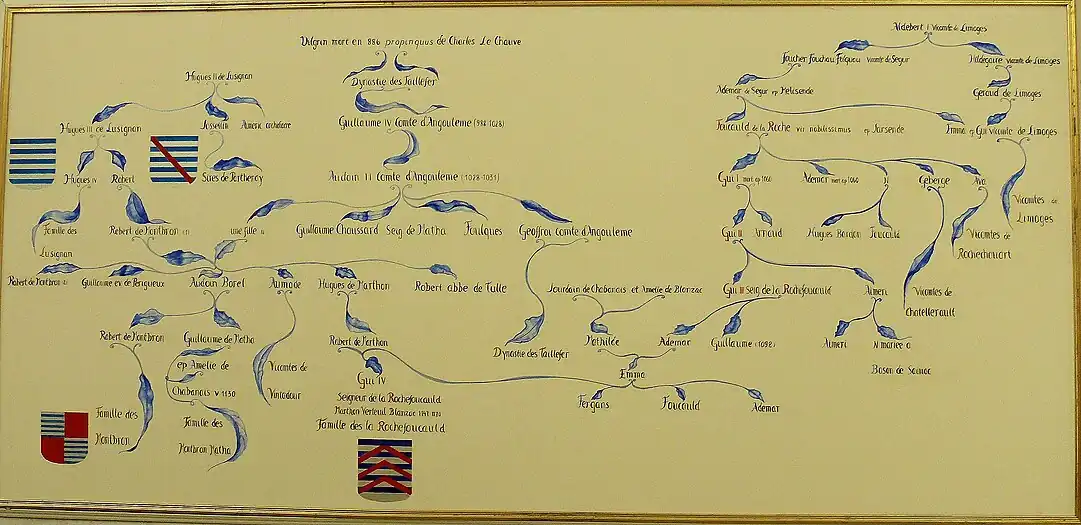 Aldebert I Vicomte de Limoges
Vulgrin mort en 886 propinquus de Charles Le Chauve
Foucher Fouchau Fulquou Vicomte de Segur
Hildegaire vicomte de Limoges
Hugues II de Lusignan
Dynastie des Taillefer
Ademar de Segur ep Melisende
Geraud de Limoges
Hugues III de Lusignan
Josselin
Aumeric
Guillaume IV Comte d'Angouleme (988-1028)
Foucauld de la Roche vir nobilissimus ep Jarsende
Emma ep Gui vicomte de Limoges
Hugues IV
Robert
Sires de Partheray
Audoin II Comte d'Angouleme (1028-1031)
Gui I
Ademar
N
Geberge
Ava
Vicomtes de
Limoges
Famille des
Lusignan
Robert de Montbron
une fille
Guillaume Chaussard
Seig de Matha
Foulques
Geoffroi comte d'Angouleme
Gui II
Arnaud
Hugues Bardon
Foucauld
Vicomtes de
Rochechouart
Robert de Montbron
Guillaume ev de Perigueux
Audoin Borel
Aumode
Hugues de Marthon
Robert abbe de Tulle
Jourdain de Chabanais et Amelie de Blanzac
Gui III Seig de la Rochefoucauld
Aimeri
Vicomtes de
Chatellerault
Robert de Montbron
Guillaume de Matha
ep Amelie de
Chabanais v 1130
Vicomtes de
Vintadour
Robert de Marthon
Dynastie des Taillefer
Mathilde
Ademar
Guillaume (1092)
Aimeri
N mariee a
Gui IV
Seigneur de la Rochefoucauld
Marthon Verteuil Blanzac
Famille des la Rochefoucauld
Emma
Fergans
Foucauld
Ademar
Famille des
Montbron
Famille des
Montbron Matha